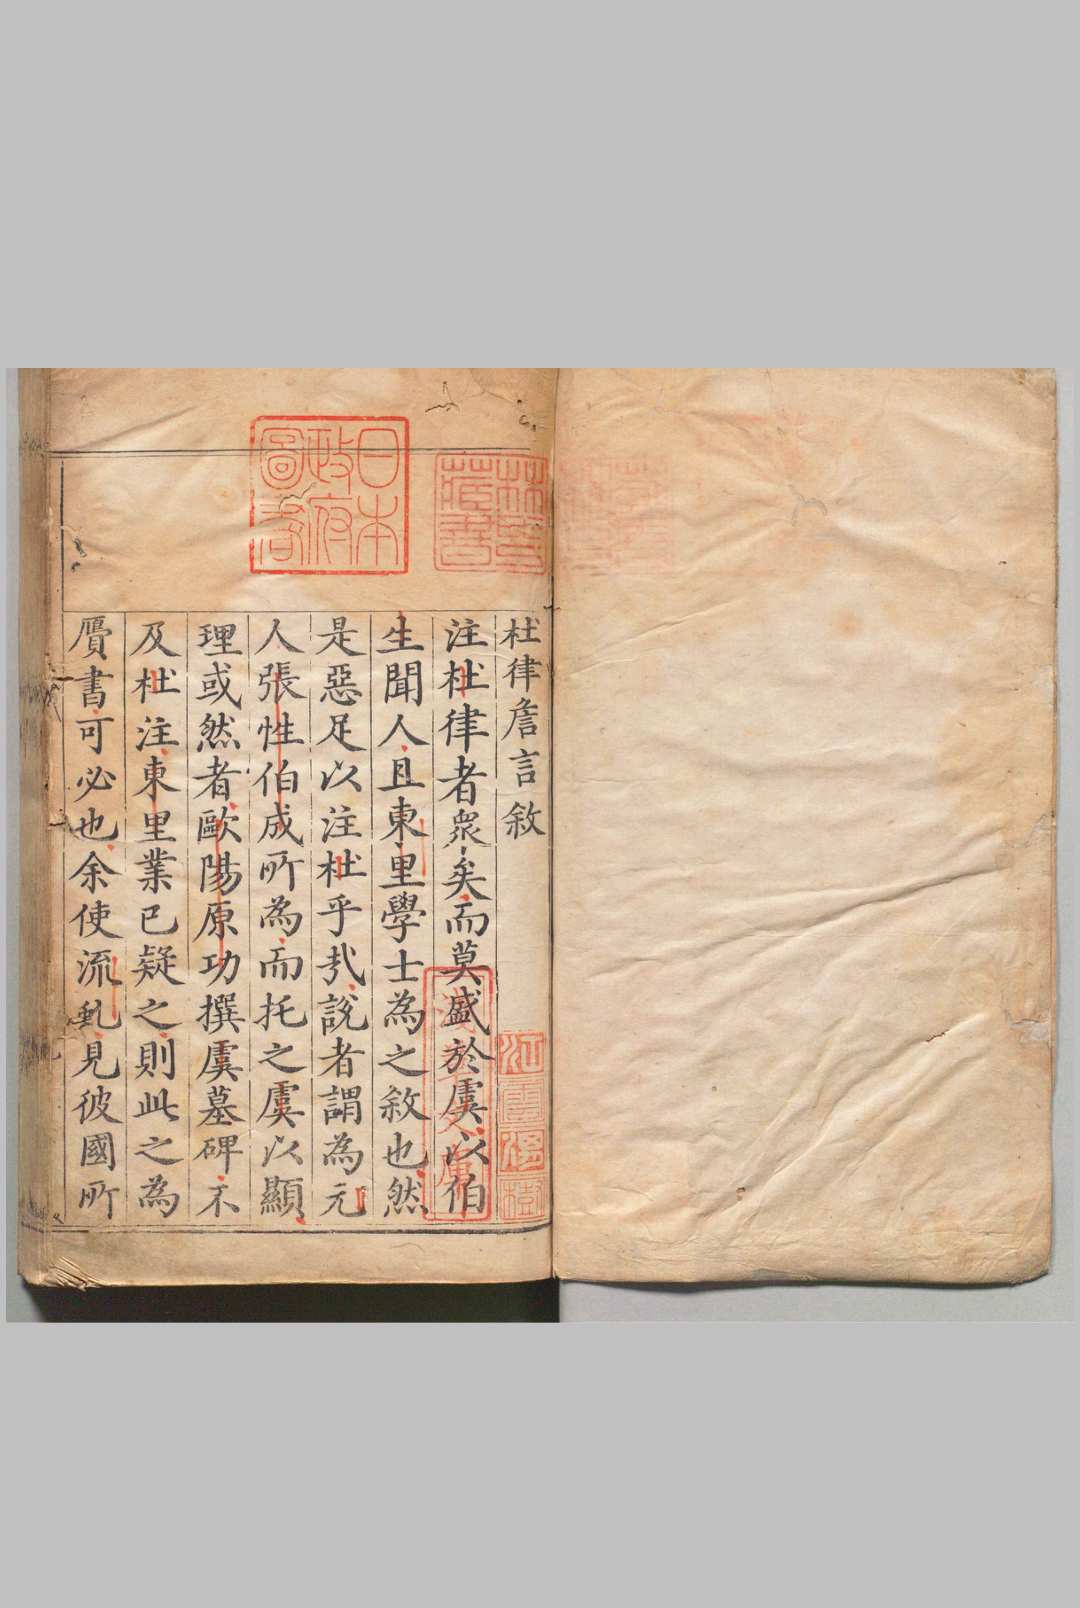 日本
政府
圖書
林氏
藏書
杜律詹言敘
江雲渭樹
注杜律者衆矣而莫盛於虞以伯
淺草文庫
生聞人且東里學士為之敘也然
是惡足以注杜乎哉說者謂為元
人張性伯成所為而托之虞以顯
理或然者歐陽原功撰虞墓碑不
及杜注東里業已疑之則此之為
贋書可必也余使流虬見彼國所